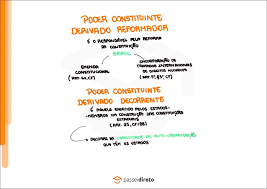 PODER CONSTITUINTE
DERIVADO REFORMADOR
É O RESPONSÁVEL PELA REFORMA
DA CONSTITUIÇÃO
EMENDA
CONSTITUCIONAL
INCORPORAÇÃO DE
TRATADOS INTERNACIONAIS
DE DIREITOS HUMANOS
PODER CONSTITUINTE
DERIVADO DECORRENTE
É AQUELE EXERCIDO PELOS ESTADOS-
MEMBROS NA CONSTRUÇÃO DAS CONSTITUIÇÕES
ESTADUAIS
DECORRE DA CAPACIDADE DE AUTO-ORGANIZAÇÃO
QUE TÊM OS ESTADOS
passeidireto